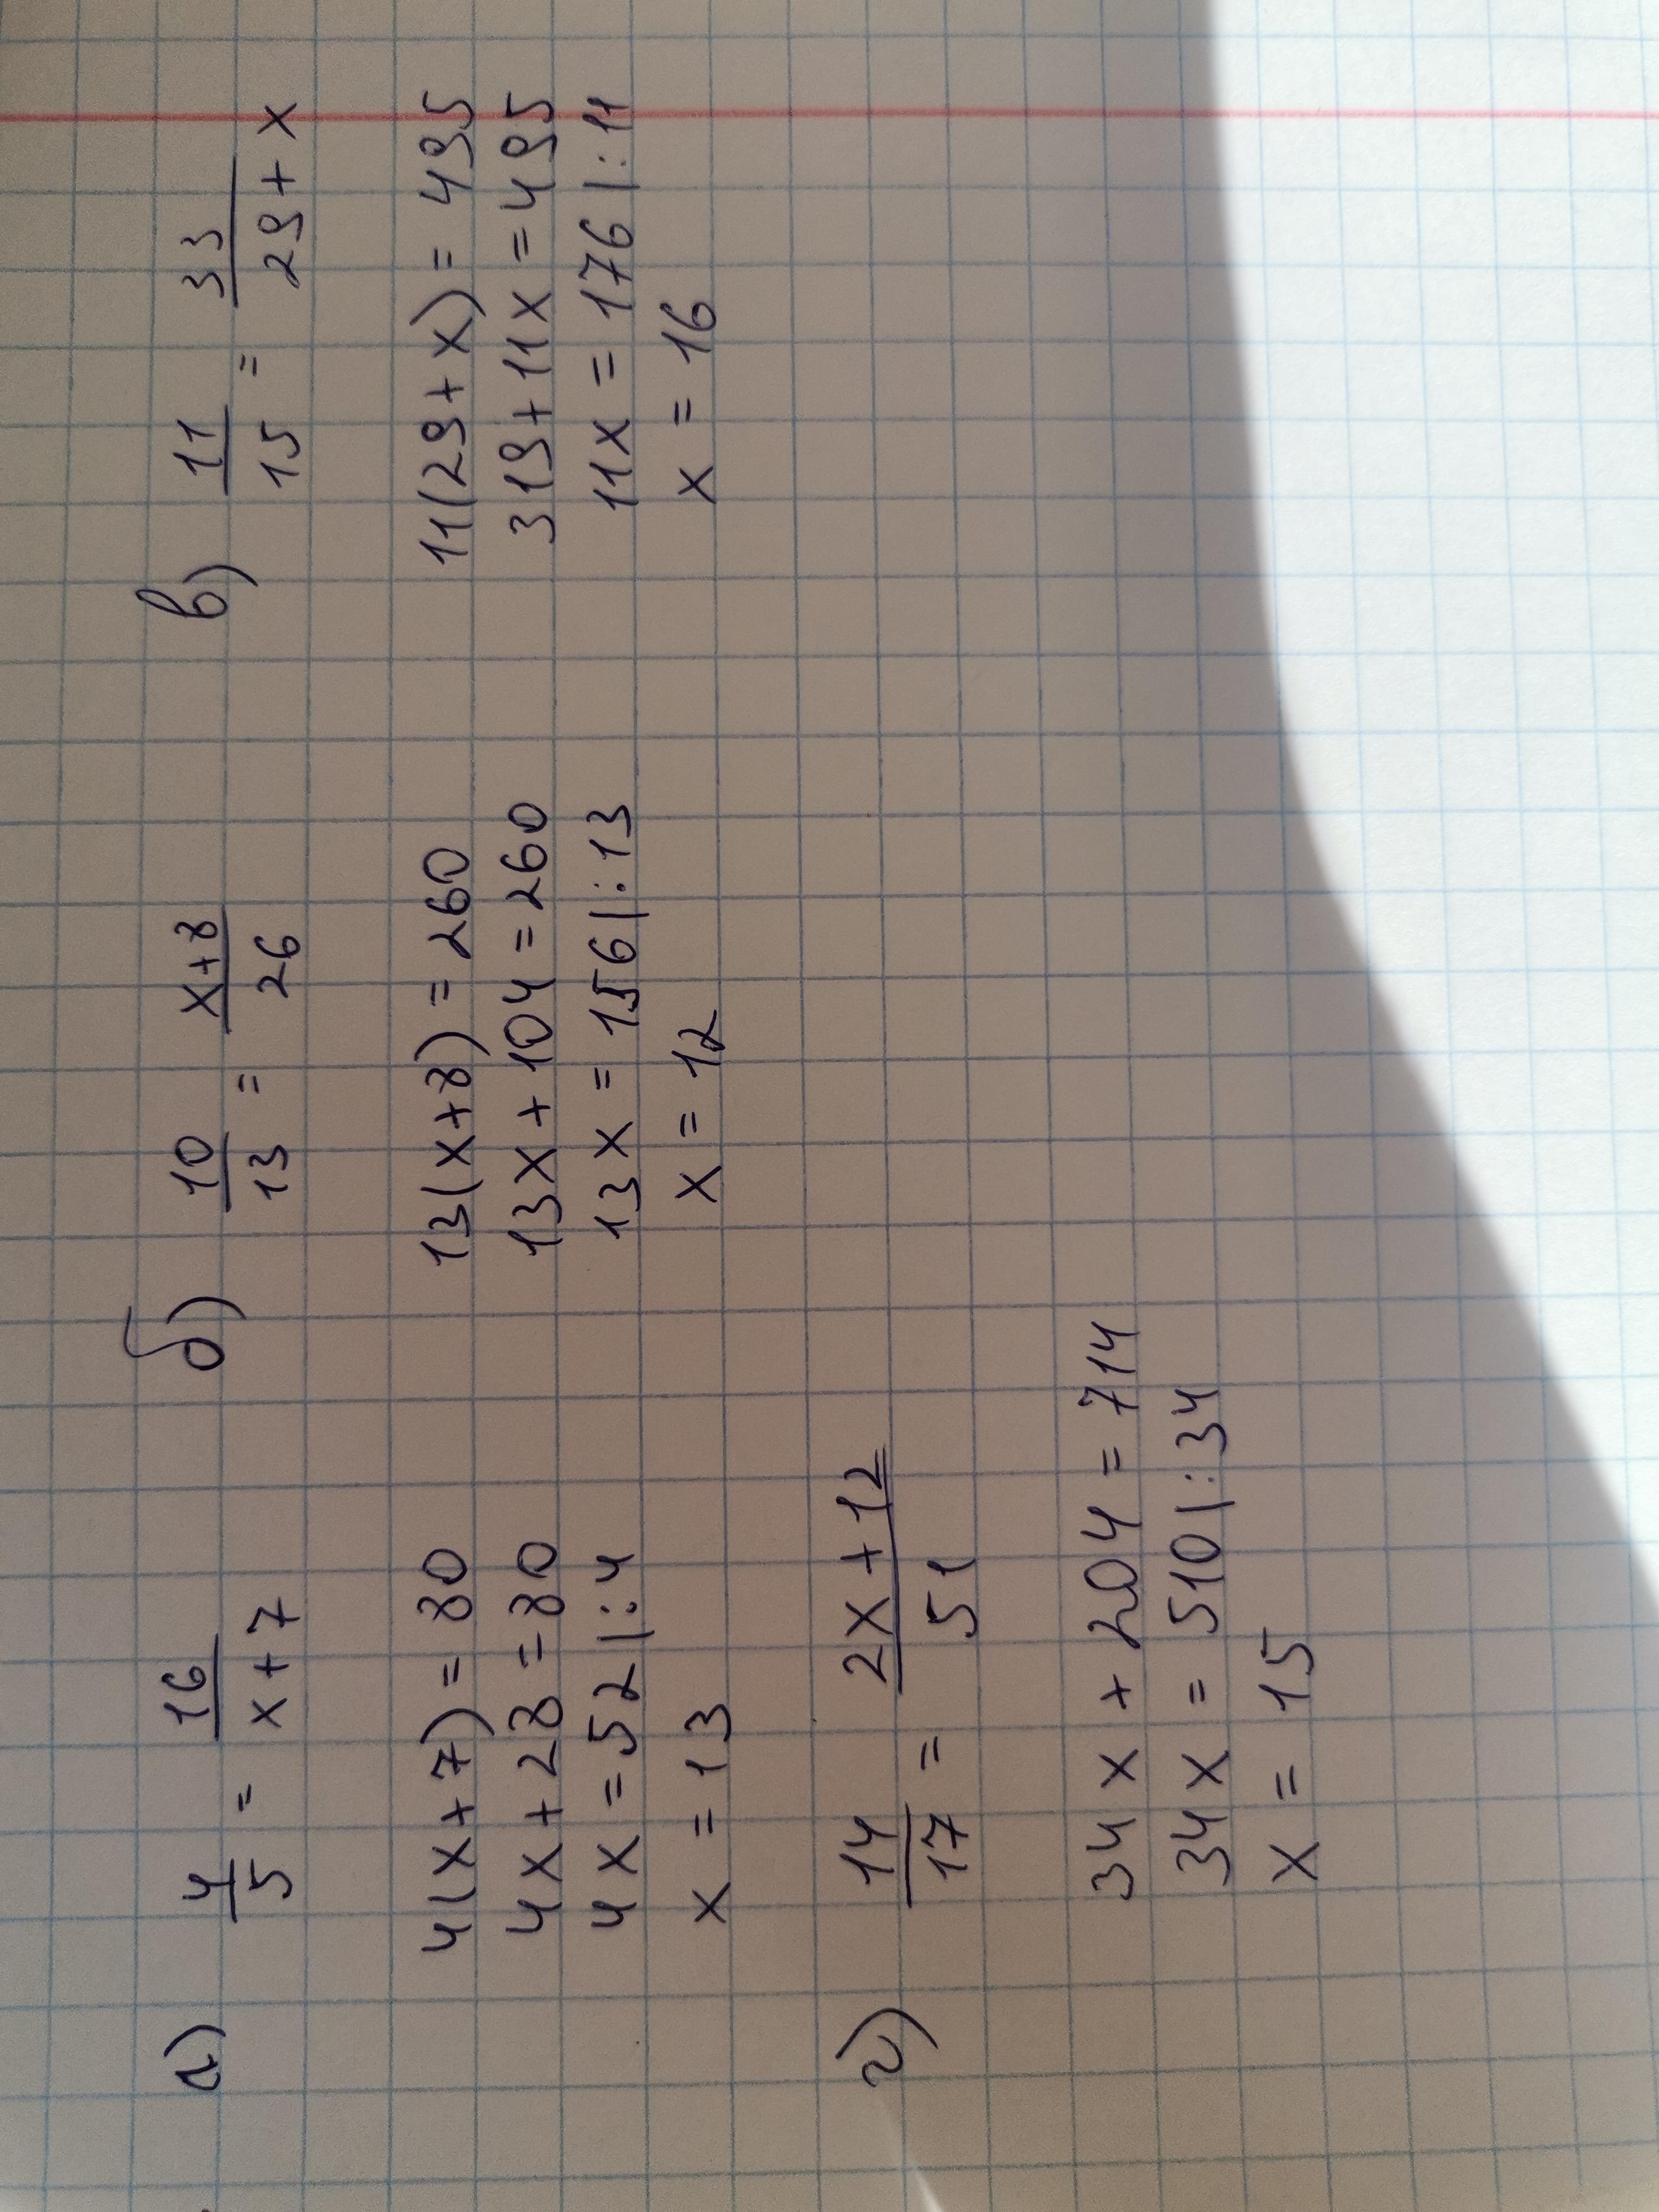 а) 4/5 = 16/(x+7)
4(x+7) = 80
4x+28 = 80
4x = 52 |:4
x = 13
б) 10/13 = (x+8)/26
13(x+8) = 260
13x+104 = 260
13x = 156 |:13
x = 12
в) 11/15 = 33/(29+x)
11(29+x) = 495
319+11x = 495
11x = 176 |:11
x = 16
г) 14/17 = (2x+12)/51
34x+204 = 714
34x = 510 |:34
x = 15